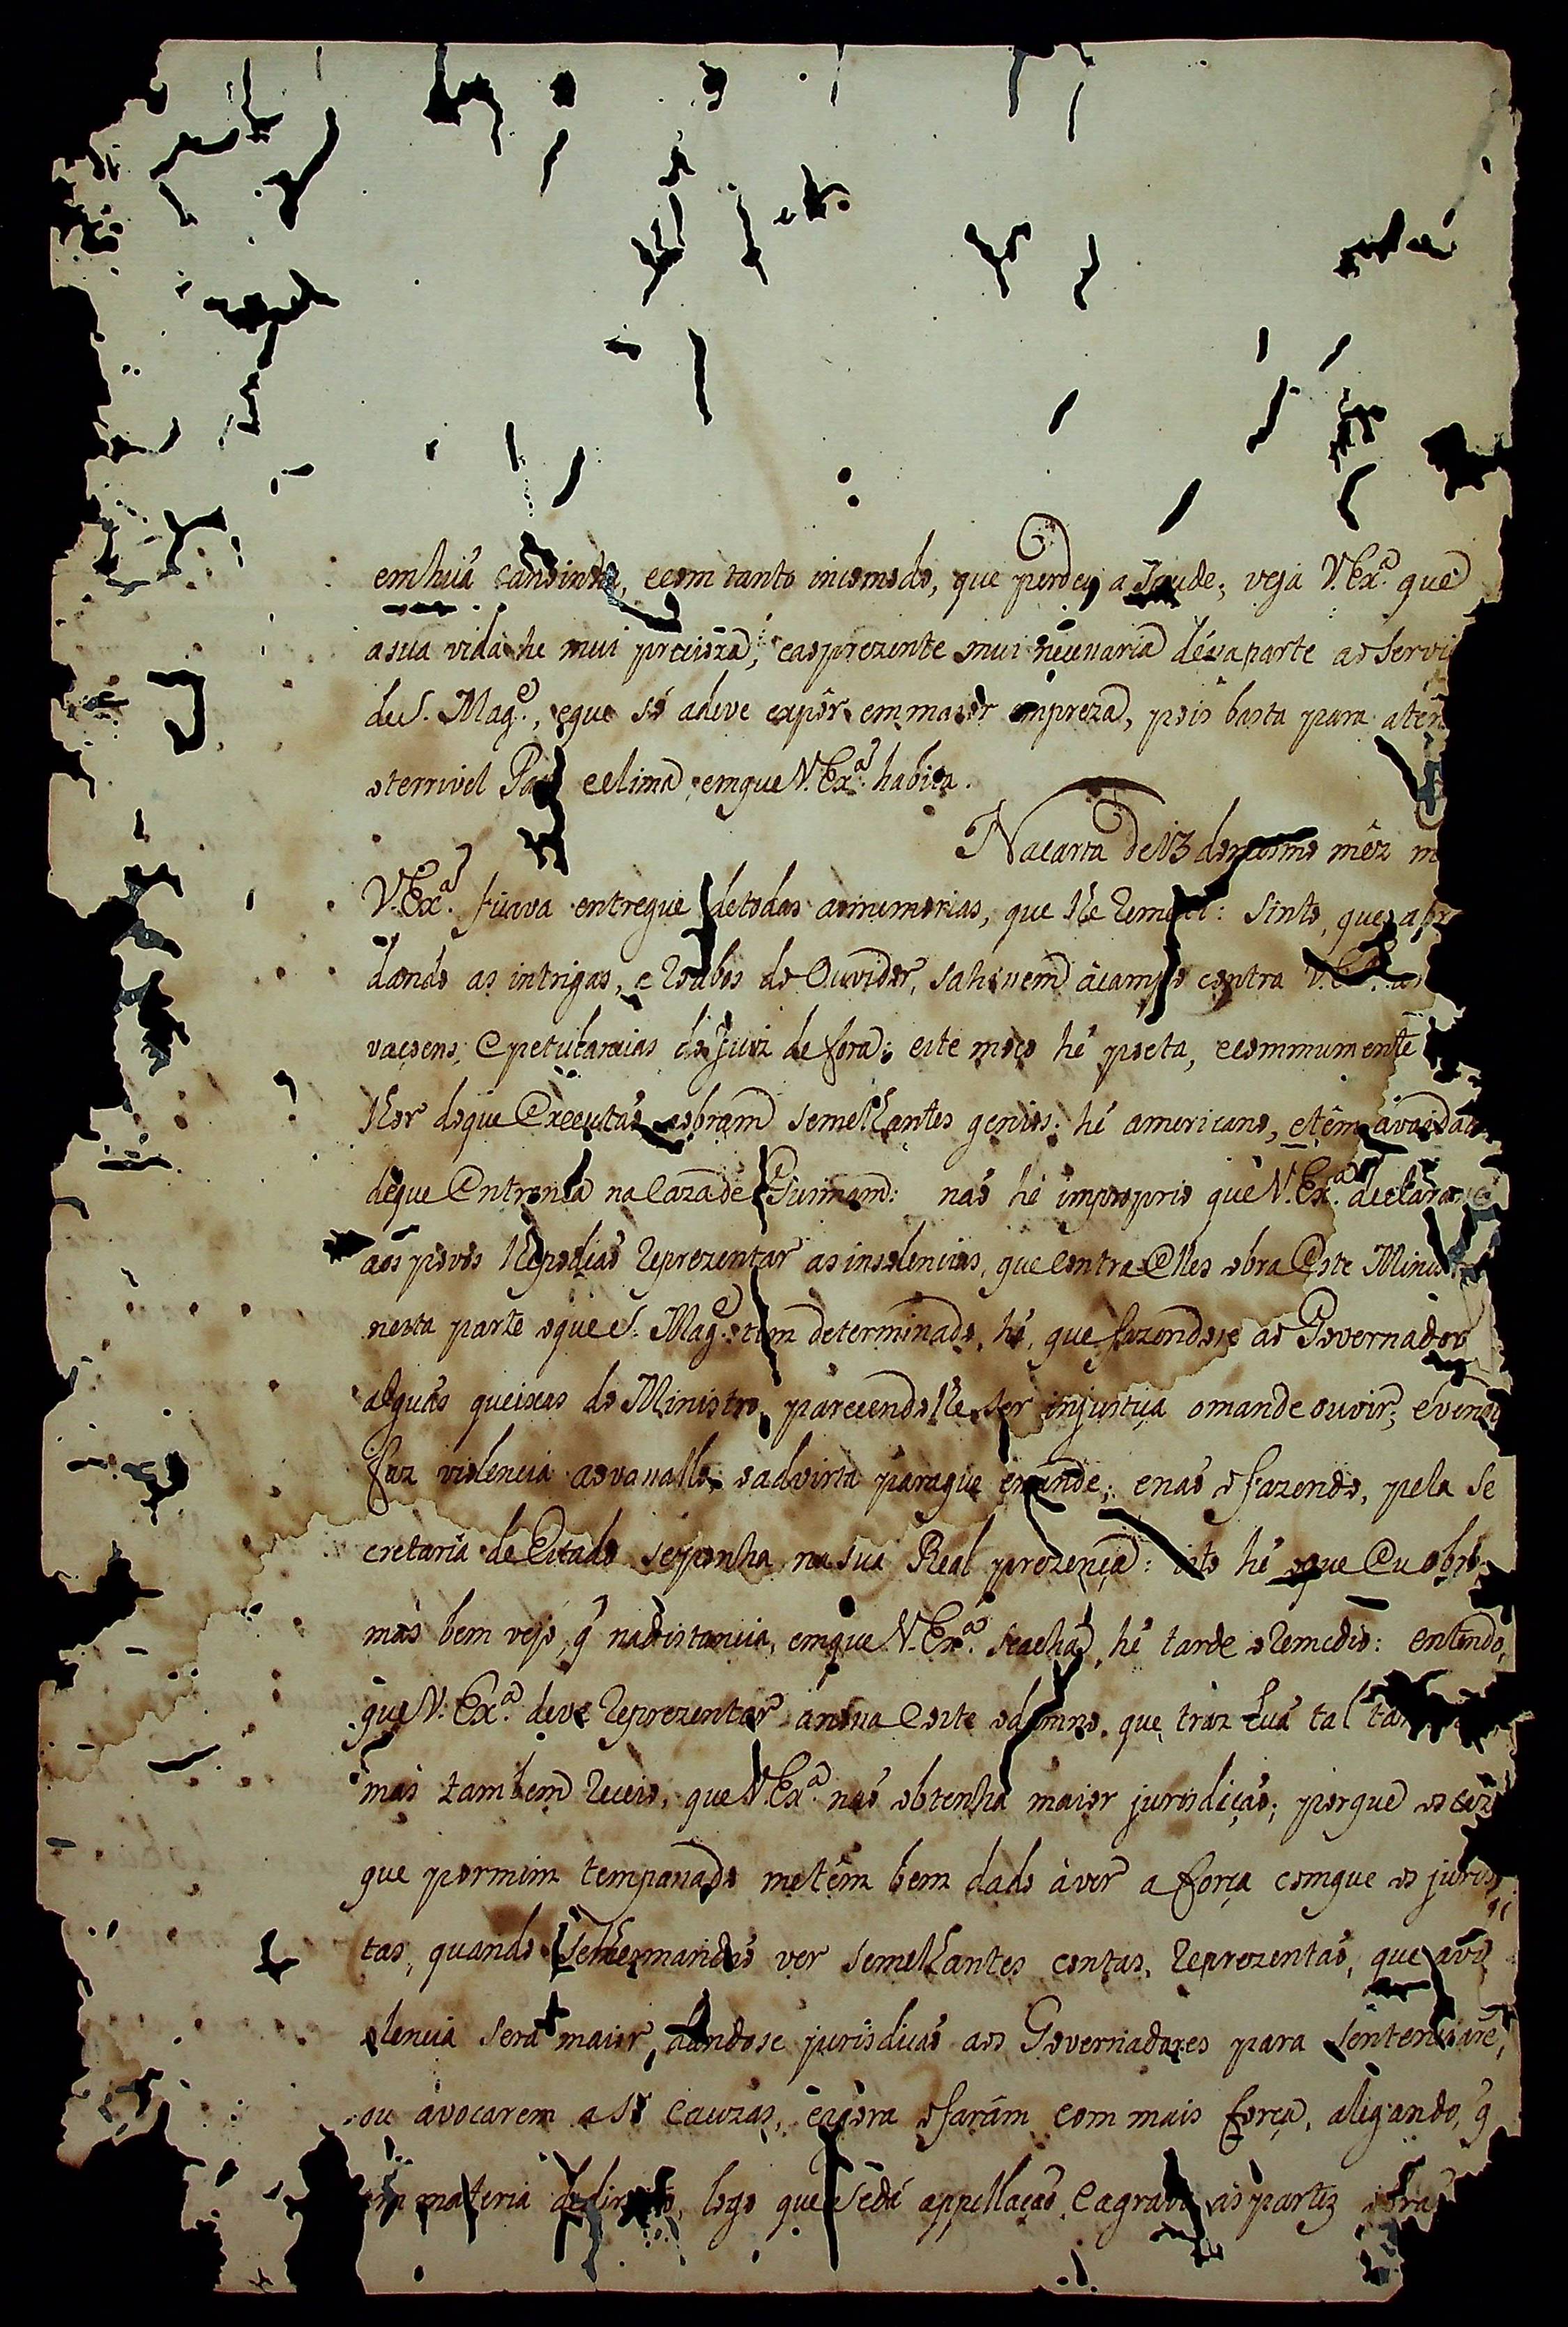 emhuá canoinha, ecom tanto incomodo, que perdeu a saude; veja V. Exª. que
asua vida he mui precisza, eaoprezente mui necessaria dessaparte ao servi
deS. Mag.e, eque só adeve expôr emmaior empreza, pois basta para
oterrivel Pais eclima emque V. Exª. habita.
Nacarta de 13 domesmo mêz
V. Exª. ficava entregue detodas asmemorias, que lhe remeti: sinto, que
dando as intrigas, e roubos do Ouvidor, sahissem ácampo contra
vaçoens, e petulancias do Juiz de fora: este moço hé poeta, ecommumente
lhor doque Executaõ obram semelhantes genios: hé americano, etêm avaidade
deque Entronca naCaza de Gusmam: naõ hé improprio que V. Exª. declarase
aos povos lhepodiaõ reprezentar as insolencias, que contra Elles obra Este
nesta parte oque S. Mag.e tem determinado, hé, que fazendose ao Governador
alguãs queixas do Ministro, parecendolhe ser injustiça omande ouvir, e
faz violencia aovassallo, oadvirta paraque emende; enaõ ofazendo, pela se
cretaria de Estado seponha na sua Real prezença: isto hé oque Eu
mas bem vejo, q̃ nadistancia, emque V. Exª. seacha, hé tarde oremedio: entendo,
que V. Exª. deve reprezentar ánossa Corte odamno, que traz huá tal
mas tambem receio, que V. Exª. naõ obtenha maior jurisdiçaõ; porque
que pormim tempassado metêm bem dado áver a força comque os juris
tas, quando selhesmandaõ ver semelhantes contas, reprezentaõ, que avio
lencia será maior, dandose jurisdicaõ aos Governadores para sentenciarẽ,
ou avocarem a si cauzas, eagora ofaram com mais força, alegando, q̃
em materia dedireito, logo que sedá appellaçaõ, eagravo ás partes